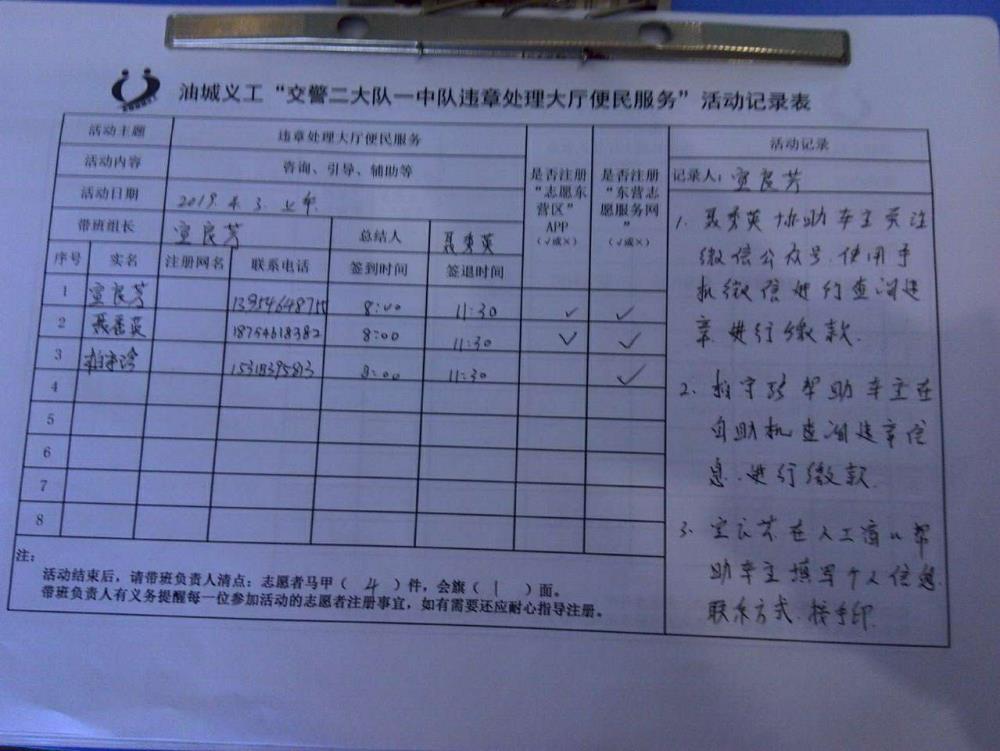 油城义工“交警二大队一中队违章处理大厅便民服务”活动记录表
活动主题 违章处理大厅便民服务
活动内容 咨询、引导、辅助等
活动日期 2019.4.3. 上午.
带班组长 宣良芳 总结人 聂秀英
是否注册“志愿东营区”APP（√或×）
是否注册“东营志愿服务网”（√或×）
序号 实名 注册网名 联系电话 签到时间 签退时间
1 宣良芳 13954648755 8:00 11:30 ✓ ✓
2 聂秀英 18754618382 8:00 11:30 ✓ ✓
3 8:00 11:30 ✓
4
5
6
7
8
注：
活动结束后，请带班负责人清点：志愿者马甲（ 4 ）件，会旗（ 1 ）面。
带班负责人有义务提醒每一位参加活动的志愿者注册事宜，如有需要还应耐心指导注册。
活动记录
记录人：宣良芳
1. 聂秀英协助车主关注
微信公众号.使用手
机微信进行查询违
章.进行缴款.
2. 帮助车主在
自助机查询违章信
息.进行缴款.
3. 宣良芳在人工窗口帮
助车主填写个人信息
联系方式.按手印.